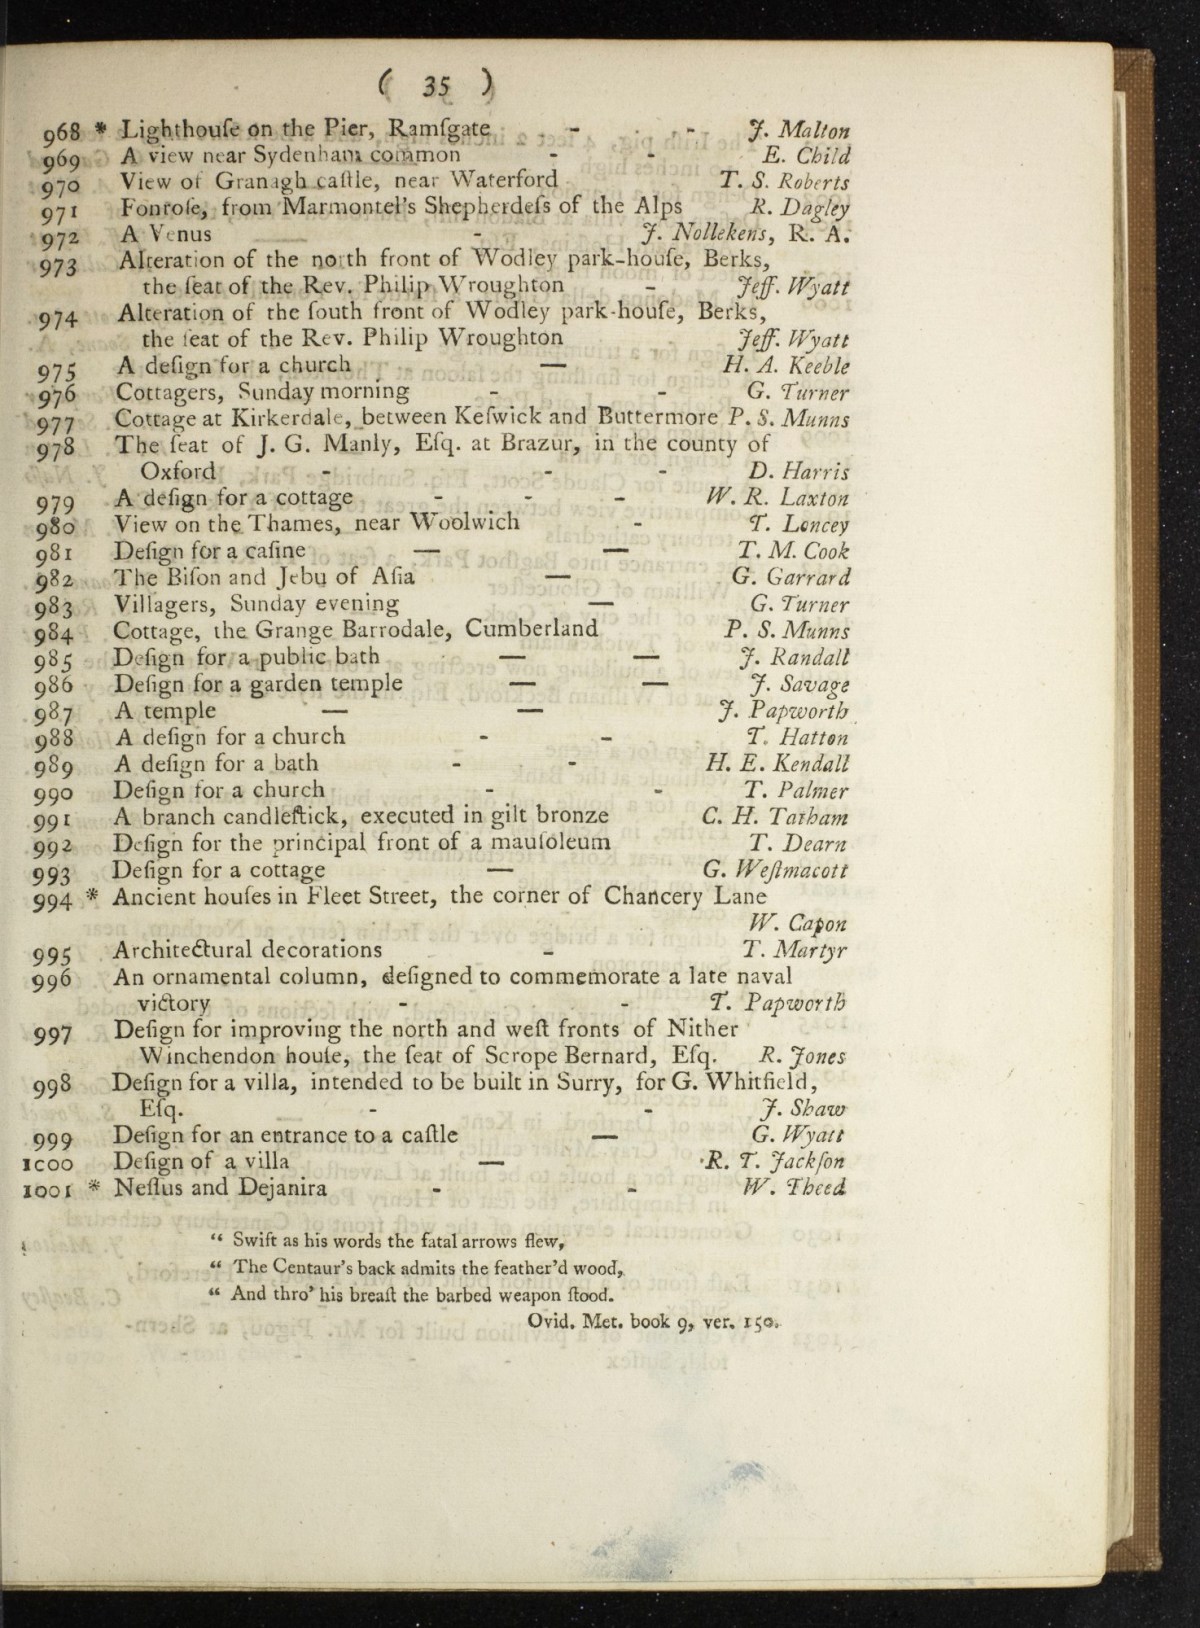 ( 35 )
968 * Lighthouſe on the Pier, Ramſgate - - J. Malton
969 A view near Sydenham common - - E. Child
970 View of Granagh caſtle, near Waterford T. S. Roberts
971 Fonroſe, from Marmontel's Shepherdeſs of the Alps R. Dagley
972 A Venus - J. Nollekens, R. A.
973 Alteration of the north front of Wodley park-houſe, Berks,
the ſeat of the Rev. Philip Wroughton - Jeff. Wyatt
974 Alteration of the ſouth front of Wodley park-houſe, Berks,
the ſeat of the Rev. Philip Wroughton Jeff. Wyatt
975 A deſign for a church — H. A. Keeble
976 Cottagers, Sunday morning - - G. Turner
977 Cottage at Kirkerdale, between Keſwick and Buttermore P. S. Munns
978 The ſeat of J. G. Manly, Eſq. at Brazur, in the county of
Oxford - - - D. Harris
979 A deſign for a cottage - - - W. R. Laxton
980 View on the Thames, near Woolwich - T. Lencey
981 Deſign for a caſine — — T. M. Cook
982 The Biſon and Jebu of Aſia — G. Garrard
983 Villagers, Sunday evening — G. Turner
984 Cottage, the Grange Barrodale, Cumberland P. S. Munns
985 Deſign for a public bath — — J. Randall
986 Deſign for a garden temple — — J. Savage
987 A temple — — J. Papworth
988 A deſign for a church - - T. Hatton
989 A deſign for a bath - - H. E. Kendall
990 Deſign for a church - - T. Palmer
991 A branch candleſtick, executed in gilt bronze C. H. Tatham
992 Deſign for the principal front of a mauſoleum T. Dearn
993 Deſign for a cottage — G. Weſtmacott
994 * Ancient houſes in Fleet Street, the corner of Chancery Lane
W. Capon
995 Architectural decorations - T. Martyr
996 An ornamental column, deſigned to commemorate a late naval
victory - - T. Papworth
997 Deſign for improving the north and weſt fronts of Nither
Winchendon houſe, the ſeat of Scrope Bernard, Eſq. R. Jones
998 Deſign for a villa, intended to be built in Surry, for G. Whitfield,
Eſq. - - J. Shaw
999 Deſign for an entrance to a caſtle — G. Wyatt
1000 Deſign of a villa — R. T. Jackſon
1001 * Neſſus and Dejanira - - W. Theed
“ Swift as his words the fatal arrows flew,
“ The Centaur's back admits the feather'd wood,
“ And thro' his breaſt the barbed weapon ſtood.
Ovid. Met. book 9, ver. 150.